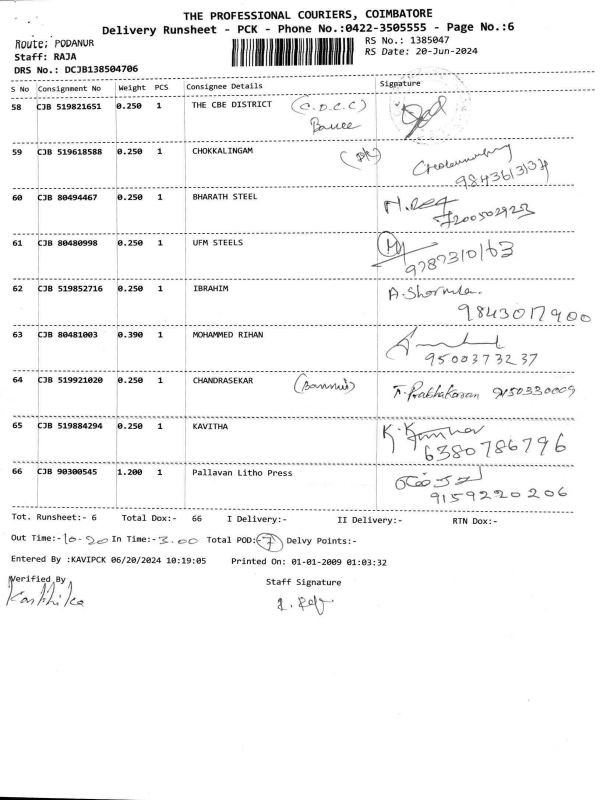 THE PROFESSIONAL COURIERS, COIMBATORE
Delivery Runsheet - PCK - Phone No.:0422-3505555 - Page No.:6
Route: PODANUR
RS No.: 1385047
Staff: RAJA
RS Date: 20-Jun-2024
DRS No.: DCJB138504706
S No Consignment No Weight PCS Consignee Details Signature
58 CJB 519821651 0.250 1 THE CBE DISTRICT (C.D.C.C)
59 CJB 519618588 0.250 1 CHOKKALINGAM
60 CJB 80494467 0.250 1 BHARATH STEEL
7200502923
61 CJB 80480998 0.250 1 UFM STEELS
9787310163
62 CJB 519852716 0.250 1 IBRAHIM A.Sharmila.
9843017900
63 CJB 80481003 0.390 1 MOHAMMED RIHAN
9500373237
64 CJB 519921020 0.250 1 CHANDRASEKAR T. Prabhakaran 9150330009
65 CJB 519884294 0.250 1 KAVITHA K. Kumar
6380786796
66 CJB 90300545 1.200 1 Pallavan Litho Press
9159220206
Tot. Runsheet:- 6 Total Dox:- 66 I Delivery:- II Delivery:- RTN Dox:-
Out Time:-10-20 In Time:-3.00 Total POD:-7 Delvy Points:-
Entered By :KAVIPCK 06/20/2024 10:19:05 Printed On: 01-01-2009 01:03:32
Verified By Staff Signature
Karthika